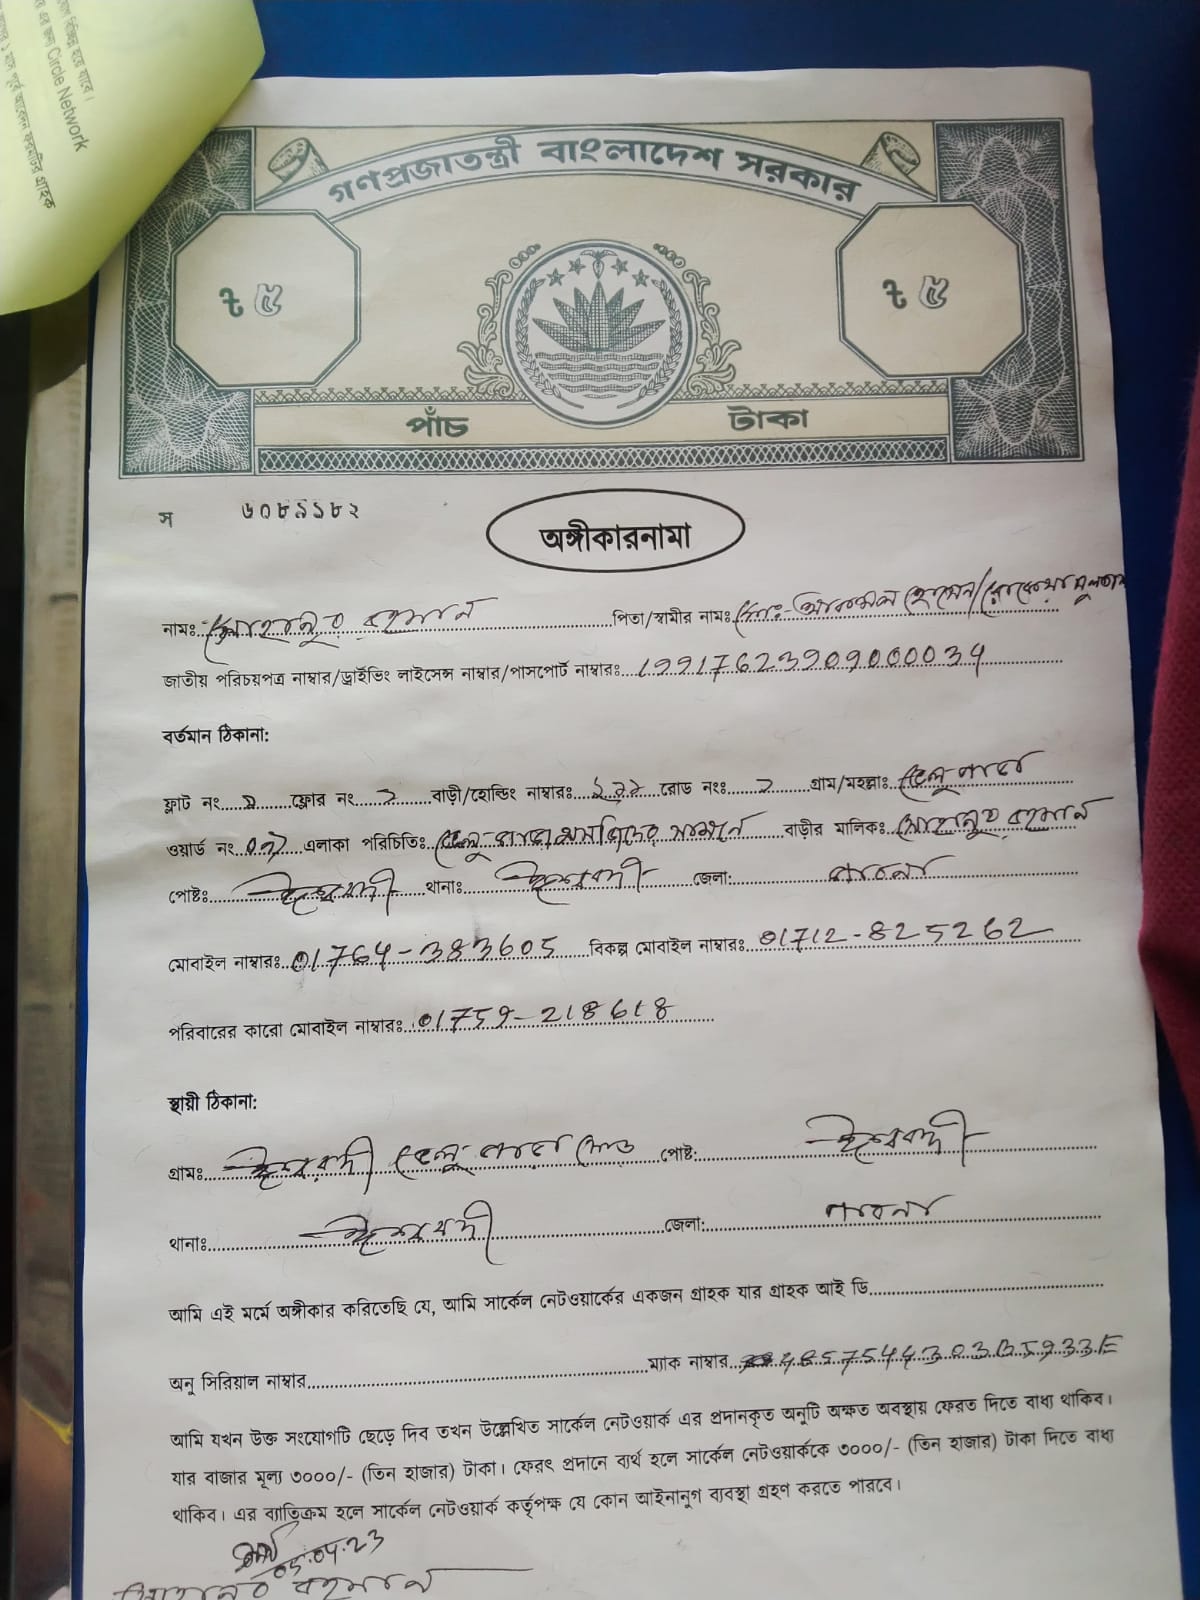 বিচ্ছিন্ন হয়ে যাবে।
এর জন্য Circle Network
১ মাস পূর্বে আবেদন ফরমটির গ্রাহক
গণপ্রজাতন্ত্রী বাংলাদেশ সরকার
৳ ৫ ৳ ৫
পাঁচ টাকা
স ৬০৮৯১৮২
অঙ্গীকারনামা
নামঃ রহমান পিতা/স্বামীর নামঃ হোসেন/
জাতীয় পরিচয়পত্র নাম্বার/ড্রাইভিং লাইসেন্স নাম্বার/পাসপোর্ট নাম্বারঃ 19917623909000034
বর্তমান ঠিকানা:
ফ্লাট নং ফ্লোর নং ২ বাড়ী/হোল্ডিং নাম্বারঃ রোড নংঃ গ্রাম/মহল্লাঃ
ওয়ার্ড নং এলাকা পরিচিতিঃ মসজিদের সামনে বাড়ীর মালিকঃ রহমান
পোষ্টঃ ঈশ্বরদী থানাঃ ঈশ্বরদী জেলা: পাবনা
মোবাইল নাম্বারঃ 01764-383605 বিকল্প মোবাইল নাম্বারঃ 01712-825262
পরিবারের কারো মোবাইল নাম্বারঃ 01759-218618
স্থায়ী ঠিকানা:
গ্রামঃ ঈশ্বরদী রোড পোষ্ট: ঈশ্বরদী
থানাঃ ঈশ্বরদী জেলা: পাবনা
আমি এই মর্মে অঙ্গীকার করিতেছি যে, আমি সার্কেল নেটওয়ার্কের একজন গ্রাহক যার গ্রাহক আই ডি
অনু সিরিয়াল নাম্বার ম্যাক নাম্বার
আমি যখন উক্ত সংযোগটি ছেড়ে দিব তখন উল্লেখিত সার্কেল নেটওয়ার্ক এর প্রদানকৃত অনুটি অক্ষত অবস্থায় ফেরত দিতে বাধ্য থাকিব।
যার বাজার মূল্য ৩০০০/- (তিন হাজার) টাকা। ফেরৎ প্রদানে ব্যর্থ হলে সার্কেল নেটওয়ার্ককে ৩০০০/- (তিন হাজার) টাকা দিতে বাধ্য
থাকিব। এর ব্যাতিক্রম হলে সার্কেল নেটওয়ার্ক কর্তৃপক্ষ যে কোন আইনানুগ ব্যবস্থা গ্রহণ করতে পারবে।
05.04.23
রহমান